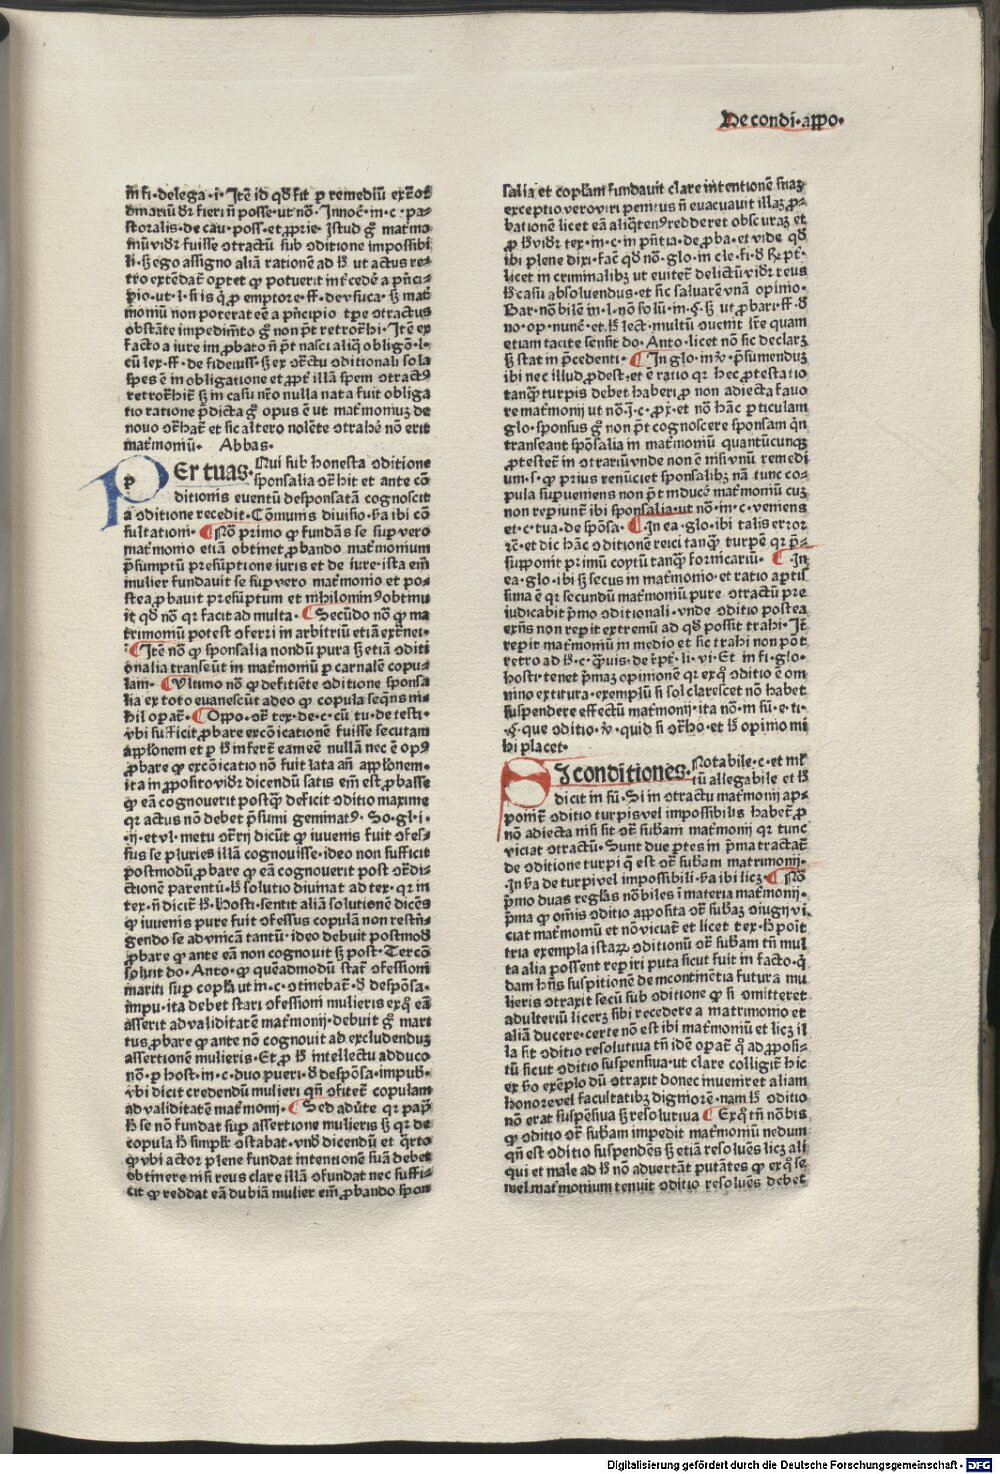 De condi·appo·
m̃ fi·delega·i·Itē id qđ fit ꝑ remediū ext̃oꝛ
dinariū dꝛ fieri ñ posse·ut nō·Innoc̃·in·c·pa-
storalis·de cau·poss·et ꝓprie·Istud g̃ mat̃mo
niū vidꝛ fuisse ↄtractū sub ↄditione impossibi
li·ꝫ ego assigno aliā rationē ad ħ ut actus re-
tro extēdat̃ oꝑtet ꝙ potuerit int̃cedē a p̃nci-
pio·ut·l·si is q̇ ꝓ emptore·ff·de vsuca·ꝫ mat̃
moniū non poterat eē a p̃ncipio tp̄e ↄtractus
obstāte impedim̃to g̃ non p̄t retrotr̃hi·Itē ex
facto a iure improbato ñ p̄t nasci aliq̃ obligō·l·
cū lex·ff·de fideiuss·ꝫ ex ↄtr̃ctu ↄditionali sola
spes ē in obligatione et ꝓpt̃ illā spem ↄtractꝰ
retrotr̃hit̃ ꝫ in casu nr̃o nulla nata fuit obliga
tio ratione p̃dicta g̃ opus ē ut mat̃moniuꝫ de
nouo ↄtr̃hat̃ et sic altero nolēte ↄtrahē nō erit
mat̃moniū· Abbas·
PEr tuas· Qui sub honesta ↄditione
sponsalia ↄtr̃hit et ante cō
ditionis euentū desponsatā cognoscit
a ↄditione recedit·Cōmunis diuisio·v̄a ibi cō
sultationi· Nō primo ꝙ fundās se suꝑ vero
mat̃monio etiā obtinet ꝓbando mat̃monium
p̃sumptū presūptione iuris et de iure·ista em̃
mulier fundauit se suꝑ vero mat̃monio et po-
stea ꝓbauit presūptum et nihilomin̄ꝰ obtinu
it qđ nō qꝛ facit ad multa· Secūdo nō ꝙ ma
trimoniū potest ↄferri in arbitriū etiā ext̃nei·
Itē nō ꝙ sponsalia nondū pura ꝫ etiā ↄditi
onalia transeūt in mat̃moniū ꝑ carnalē copu-
lam· Ultimo nō ꝙ deficiēte ↄditione sponsa
lia ex toto euanescūt adeo ꝙ copula seq̃ns ni-
hil oꝑat̃· Oppo·ↄtr̃ tex·de·c·cū tu·de testi·
vbi sufficit ꝓbare excōicationē fuisse secutam
appłonem et ꝑ ħ infert̃ eam eē nullā nec ē opꝰ
ꝓbare ꝙ excōicatio nō fuit lata añ appłonem·
ita in ꝓposito vidꝛ dicendū satis em̃ est ꝓbasse
ꝙ eā cognouerit postꝙ̃ deficit ↄditio maxime
qꝛ actus nō debet p̃sumi geminatꝰ·So·gl·i·
·ij·et vl·metu ↄtr̃rij dicūt ꝙ iuuenis fuit ↄfes-
sus se pluries illā cognouisse·ideo non sufficit
postmodū ꝓbare ꝙ eā cognouerit post ↄtr̃di-
ctionē parentū·ħ solutio diuinat ad tex·qꝛ in
tex·ñ dicit̃ ħ·Hosti·sentit aliā solutionē dicēs
ꝙ iuuenis pure fuit ↄfessus copulā non restrī-
gendo se ad vnicā tantū·ideo debuit postmođ
ꝓbare ꝙ ante eā non cognouit ꝫ post·Terco
soluit do·Anto·ꝙ quēadmodū stat̃ ↄfessioni
mariti suꝑ copła ut in·c·ↄtinebat̃·đ despōsa·
impu·ita debet stari ↄfessioni mulieris exq̇ eā
asserit ad validitatē mat̃monij·debuit g̃ mari
tus ꝓbare ꝙ ante nō cognouit ad excludenduꝫ
assertionē mulieris·Et ꝓ ħ intellectu adduco
nō·ꝑ host·in·c·duo pueri·đ despōsa·impub·
vbi dicit credendū mulieri qñ ↄfitet̃ copulam
ad validitatē mat̃monij· Sed aduite qꝛ pap̃
ħ se nō fundat suꝑ assertione mulieris ꝫ qꝛ de
copula ħ simpłr ↄstabat·vnđ dicendū et q̃rto
ꝙ vbi actor plene fundat intentionē suā debet
obtinere nisi reus clare illā ↄfundat nec suffi-
cit ꝙ reddat eā dubiā mulier em̃ ꝓbando spon
salia et copłam fundauit clare intentionē suaꝫ
exceptio vero viri penitus ñ euacuauit illaꝫ ꝓ-
bationē licet eā aliq̃tenꝰ redderet obscuraꝫ et
ꝓ ħ vidꝛ tex·in·c·in p̄ntia·de ꝓba·et vide qđ
ibi plene dixi·fac̃ qđ nō·glo·in cle·fi·đ Rp̄t·
licet in criminalibꝫ ut euitet̃ delictū vidꝛ reus
ħ casu absoluendus·et sic saluarē vnā opinio·
Bar·nōbilē in·l·nō solū·in·§·ꝫ ut ꝓbari·ff·đ
no·op·nunc̃·et·ħ lect·multū ↄuenit lr̃e quam
etiam tacite sensit do·Anto·licet nō sic declarꝫ
ꝫ stat in p̃cedenti· In glo·in ṽ·p̃sumenduꝫ
ibi nec illud ꝓdest·et ē ratio qꝛ hec ꝓtestatio
tanꝙ̃ turpis debet haberi ꝓ non adiecta fauo
re mat̃monij ut nō·j·c·ꝓx·et nō hāc ꝑticulam
glo·sponsus g̃ non p̄t cognoscere sponsam q̇n
transeant spōsalia in mat̃moniū quantūcunqꝫ
ꝓtestet̃ in ↄtrariū vnde non ē nisi vnū remedi
um·s·ꝙ prius renūciet sponsalibꝫ nā tunc co-
pula superueniens non p̄t inducē mat̃moniū cuꝫ
non reperiūt̃ ibi sponsalia·ut nō·in·c·veniens
et·c·tua·de spōsa· In ea·glo·ibi talis error
rc̃·et dic hāc ↄditionē reici tanꝙ̃ turpē qꝛ p̃-
supponit primū coytū tanꝙ̃ fornicariū· In
ea·glo·ibi ꝫ secus in mat̃monio·et ratio aptis
sima ē qꝛ secundū mat̃moniū pure ↄtractū pre
iudicabit p̃mo ↄditionali·vnde ↄditio postea
exñs non reperit extremū ad qđ possit trahi·It̃
reperit mat̃moniū in medio et sic trahi non pōt
retro ad ħ·c·q̃uis·de r̃pt̃·li·vi·Et in fi·glo·
hosti·tenet p̃maꝫ opinionē qꝛ exq̇ ↄditio ē om
nino extitura·exemplū si sol clarescet nō habet
suspendere effectū mat̃monij·ita nō·in sū·e·ti·
§·que ↄditio·ṽ·quid si ↄtr̃ho·et ħ opinio mi
hi placet·
SI conditiones· Notabile·c·et ml̃
tū allegabile et ħ
dicit in sū·Si in ↄtractu mat̃monij ap-
ponit̃ ↄditio turpis vel impossibilis habet̃ ꝓ
nō adiecta nisi sit ↄtr̃ subam mat̃monij qꝛ tunc
viciat ↄtractū·Sunt due ꝑtes in p̃ma tractat̃
de ↄditione turpi q̃ est ↄtr̃ subam matrimonij·
·In v̄a de turpi vel impossibili·v̄a ibi licꝫ· Nō
primo duas regłas nōbiles ī materia mat̃monij·
p̃ma ꝙ om̄is ↄditio apposita ↄtr̃ subaꝫ ↄiugij vi
ciat mat̃moniū et nō viciat̃ et licet tex·ħ poīt
tria exempla istaꝝ ↄditionū ↄtr̃ subam tñ mul
ta alia possent reperiri puta sicut fuit in facto·q̇
dam hñs suspitionē de incontinētia futura mu
lieris ↄtraxit secū sub ↄditione ꝙ si ↄmitteret
adulteriū licerꝫ sibi recedere a matrimonio et
aliā ducere·certe nō est ibi mat̃moniū et licꝫ il
la sit ↄditio resolutiua tñ idē oꝑat̃ q̇ ad ꝓposi-
tū sicut ↄditio suspensiua·ut clare colligit̃ hic
ex v̄o exēplo dū ↄtraxit donec inueniret aliam
honore vel facultatibꝫ digniorē·nam ħ ↄditio
nō erat suspēsiua ꝫ resolutiua Exq̇ tñ nōbis
ꝙ ↄditio ↄtr̃ subam impedit mat̃moniū nedum
qñ est ↄditio suspendēs ꝫ etiā resoluēs licꝫ ali
qui et male ad ħ nō aduertāt putātes ꝙ exq̇ se
mel mat̃monium tenuit ↄditio resoluēs debet
Digitalisierung gefördert durch die Deutsche Forschungsgemeinschaft - DFG